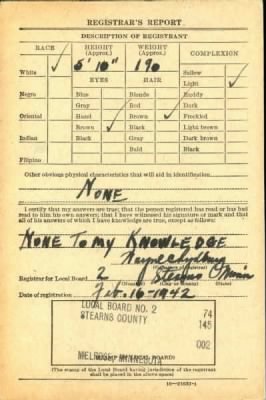 REGISTRAR'S REPORT
DESCRIPTION OF REGISTRANT
RACE HEIGHT (Approx.) WEIGHT (Approx.) COMPLEXION
5' 10" 190
White ✓ Sallow
EYES HAIR Light ✓
Negro Blue Blonde Ruddy
Gray Red Dark
Oriental Hazel Brown ✓ Freckled
Brown ✓ Black Light brown
Indian Black Gray Dark brown
Bald Black
Filipino
Other obvious physical characteristics that will aid in identification
NONE
I certify that my answers are true; that the person registered has read or has had
read to him his own answers; that I have witnessed his signature or mark and that
all of his answers of which I have knowledge are true, except as follows:
NONE TO MY KNOWLEDGE
Registrar for Local Board 2 Stearns Minn
(State)
Date of registration Feb. 16-1942
LOCAL BOARD NO. 2 74
STEARNS COUNTY 145
002
MELROSE, MINNESOTA
(STAMP OF LOCAL BOARD)
(The stamp of the Local Board having jurisdiction of the registrant
shall be placed in the above space)
16—21631-1